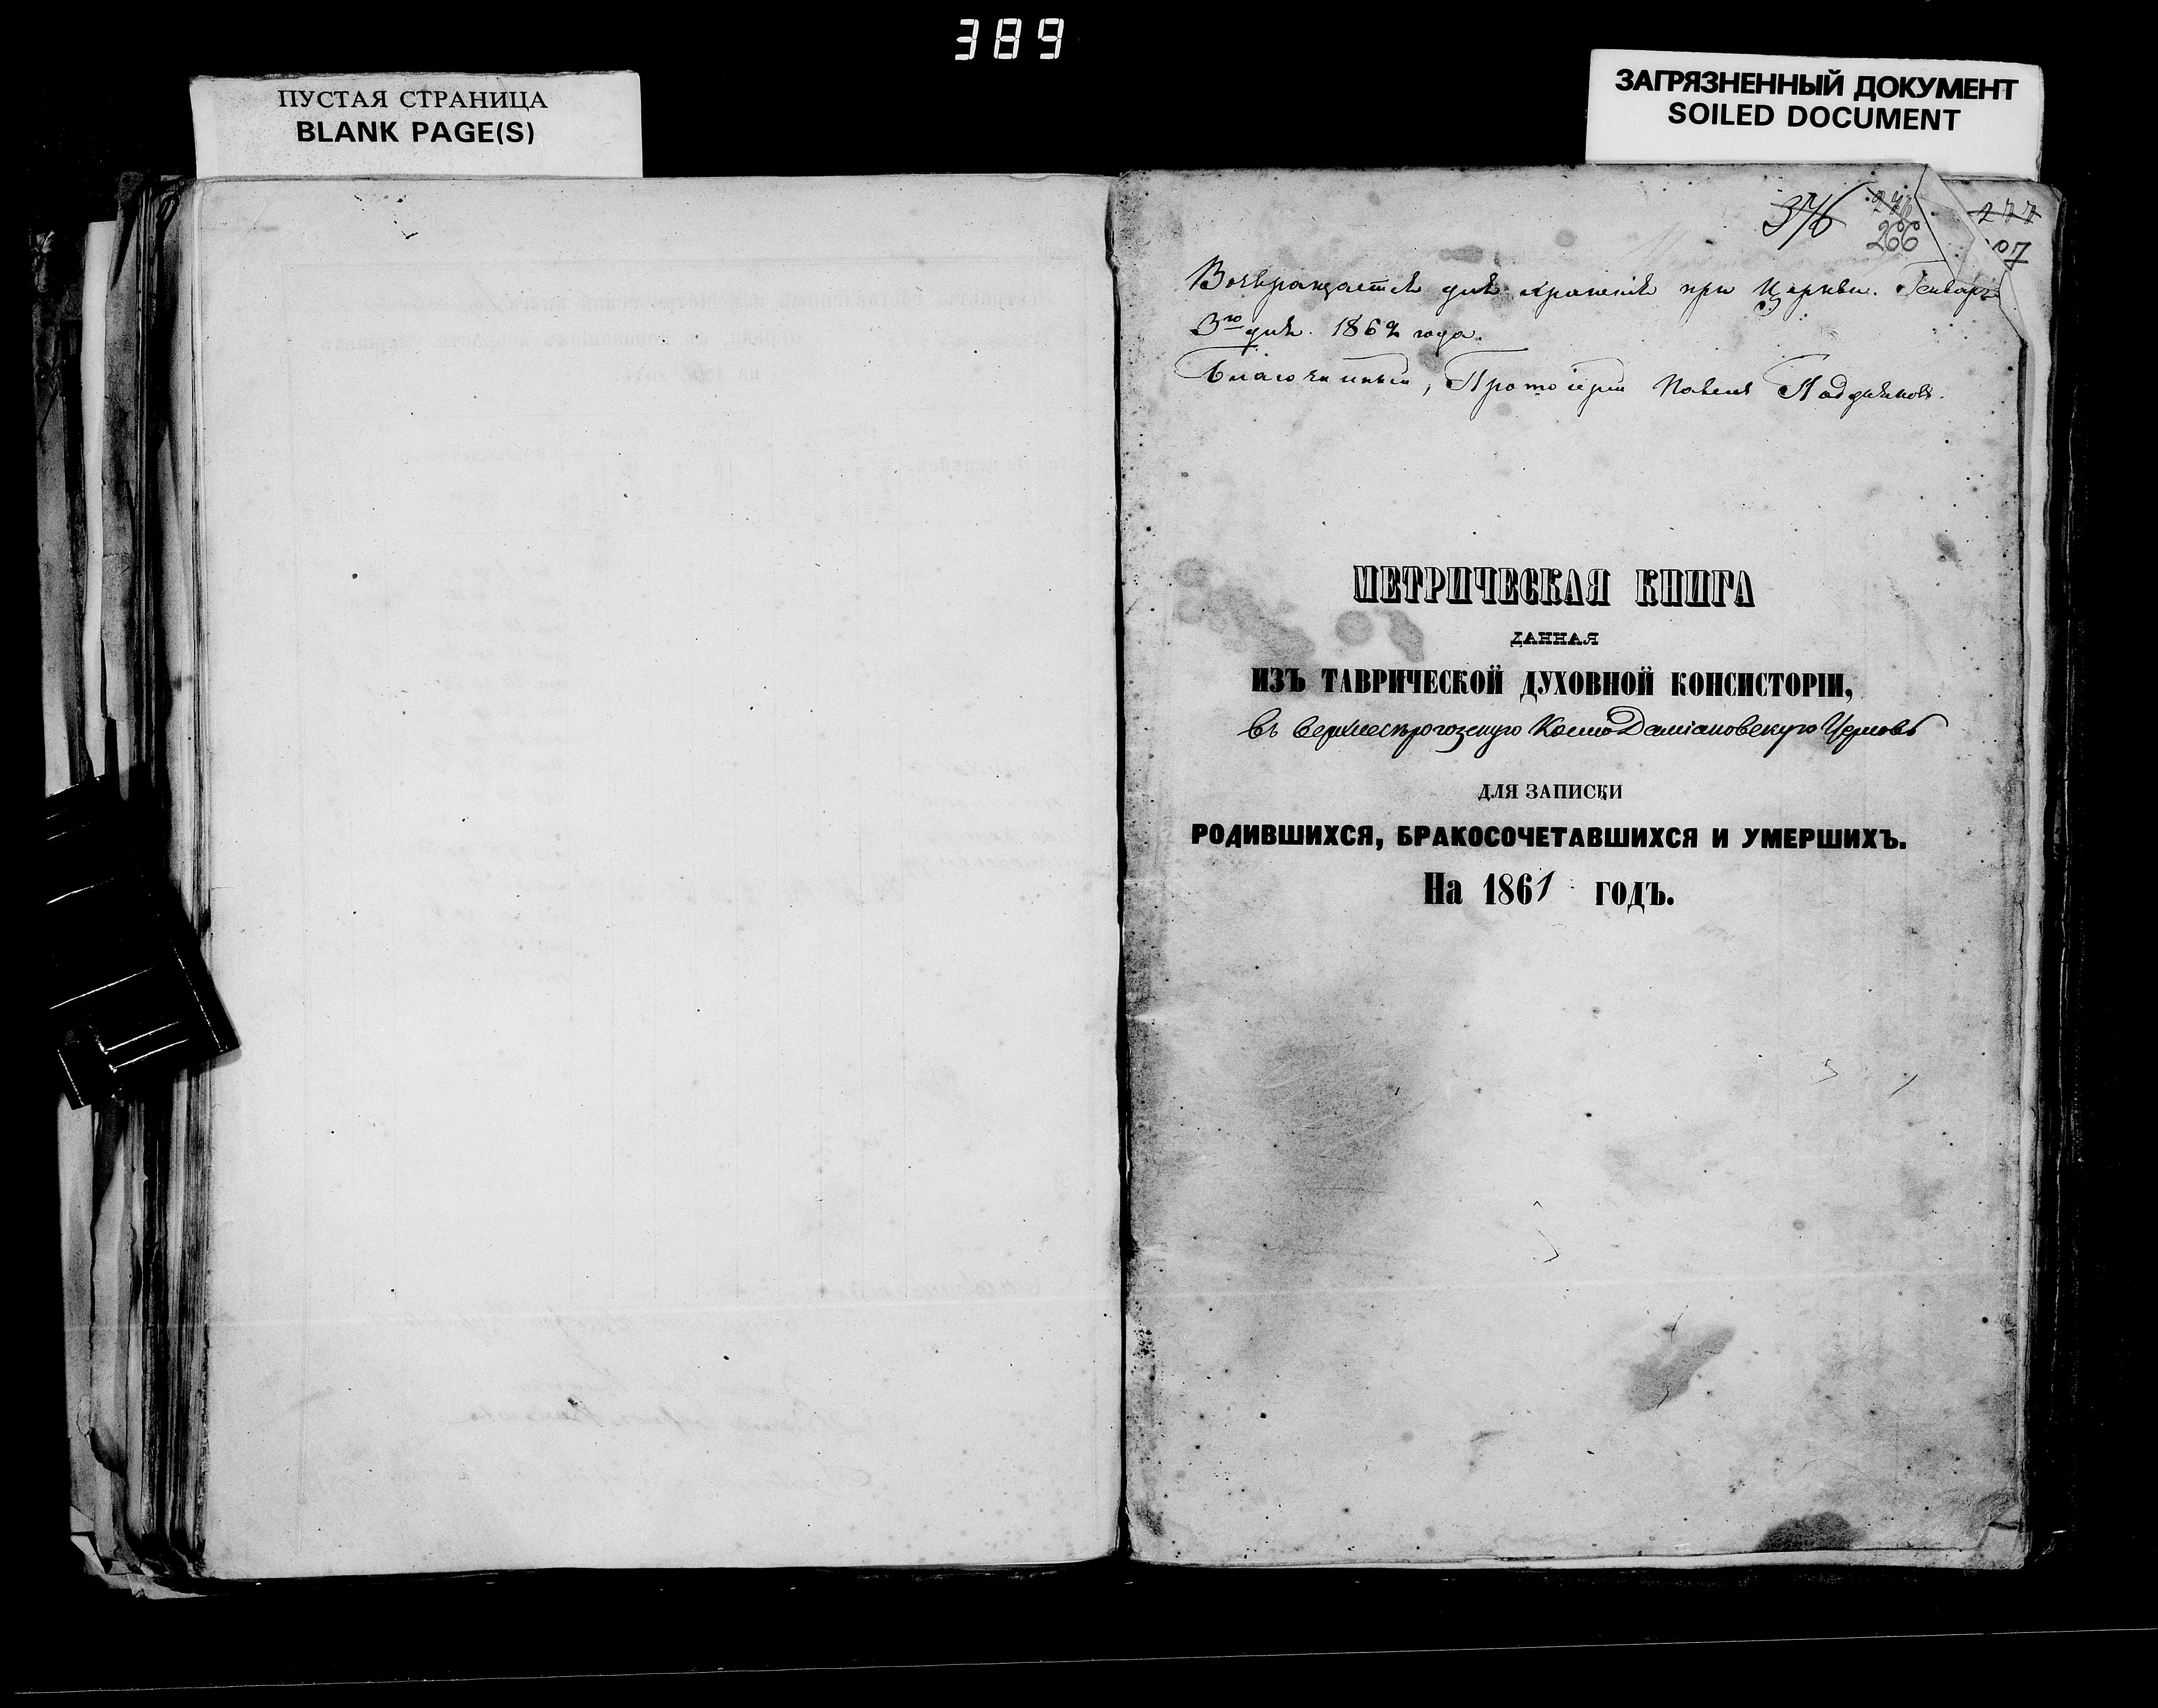 389
ПУСТАЯ СТРАНИЦА
BLANK PAGE(S)
ЗАГРЯЗНЕННЫЙ ДОКУМЕНТ
SOILED DOCUMENT
376 276 277
266
Возвращается для храненія при Церкви. Генваря
3го дня. 1862 года.
Благочинный, Протоіерей Павелъ
МЕТРИЧЕСКАЯ КНИГА
ДАННАЯ
ИЗЪ ТАВРИЧЕСКОЙ ДУХОВНОЙ КОНСИСТОРІИ,
въ Верхнесѣрогозскую КосмоДаміановскую Церковь
ДЛЯ ЗАПИСКИ
РОДИВШИХСЯ, БРАКОСОЧЕТАВШИХСЯ И УМЕРШИХЪ.
На 1861 ГОДЪ.